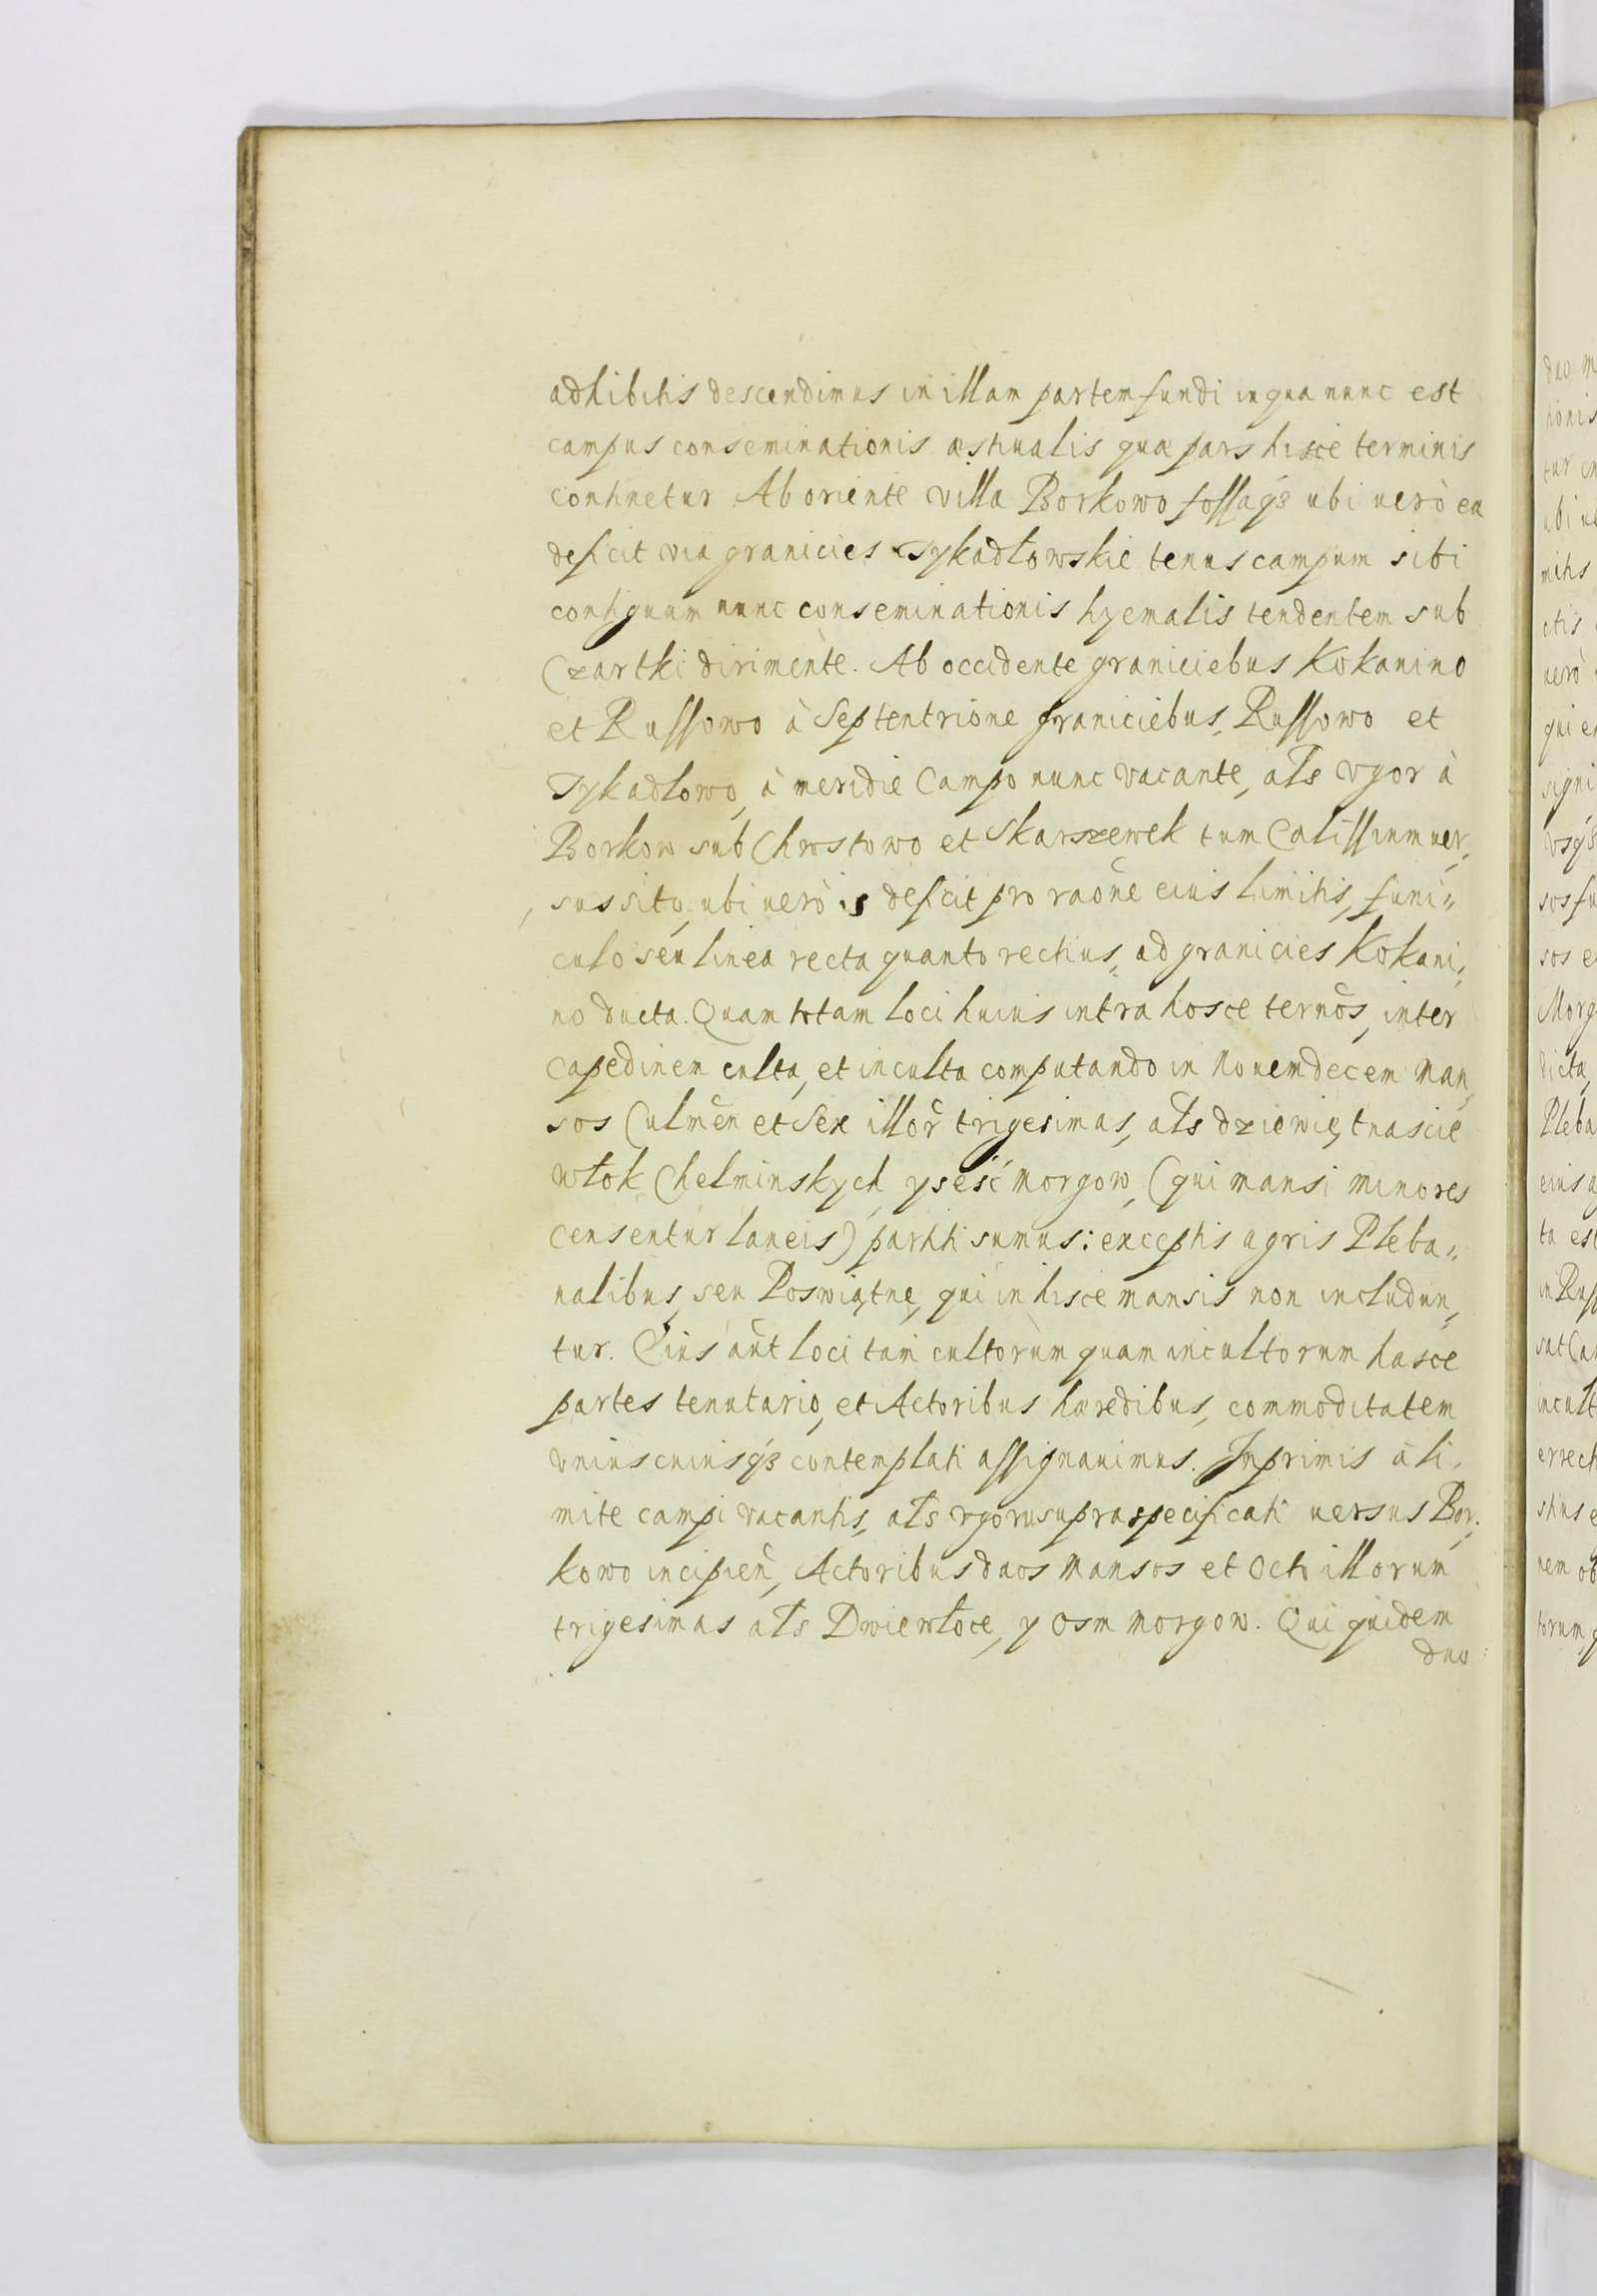 adhibitis descendimus in illam partem fundi in qua nunc est
campus conseminationis æstiualis quæ pars hisce terminis
continetur Ab oriente villa Borkowo fossaq́ꝫ ubi uerò ea
deficit via granicies Tykadłowskie tenus campum sibi
contiguum nunc conseminationis hyemalis tendentem sub
Czartki dirimente. Ab occidente graniciebus Kokanino
et Russowo à Septentrione graniciebus, Russowo et
Tykadłowo, à meridie Campo nunc vacante, als vgor à
Borkow sub Chwstowo et Skarszewek tum Calissium uer„
sus sito, ubi uerò is deficit pro raõne eius limitis, funi„
culo seu linea recta quanto rectius, ad granicies Kokani„
no ducta. Quam totam loci huius intra hosce termõs, inter
capedinem culta, et inculta computando in Nouemdecem Man„
sos Culmeñ et Sex illor̃ trigesimas, als dziewiętnascie
włok Chelminskych, y sesć morgow, (qui mansi minores
censentur laneis) partiti sumus: exceptis agris Pleba„
nalibus, seu Poswiątne, qui in hisce mansis non includun„
tur. Eius aũt loci tam cultorum quam incultorum hasce
partes tenutario, et Actoribus hæredibus, commoditatem
vniuscuiusq́ꝫ contemplati assignauimus. Inprimis à li„
mite campi vacantis, als vgoru supraspecificati uersus Bor„
kowo incipieñ, Actoribus duos Mansos et Octo illorum
trigesimas als Dwie włoce, y osm morgow. Qui quidem
duo
duo M
tionis
tur
ubi ue
mitis
ctis
uerò
qui e
signi
vsq́ꝫ
sos fu
sos e
Morg
dicta,
Pleba
eius a
ta est
in Russ
sat Ca
incult
errect
stius e
nem ob
torum, q